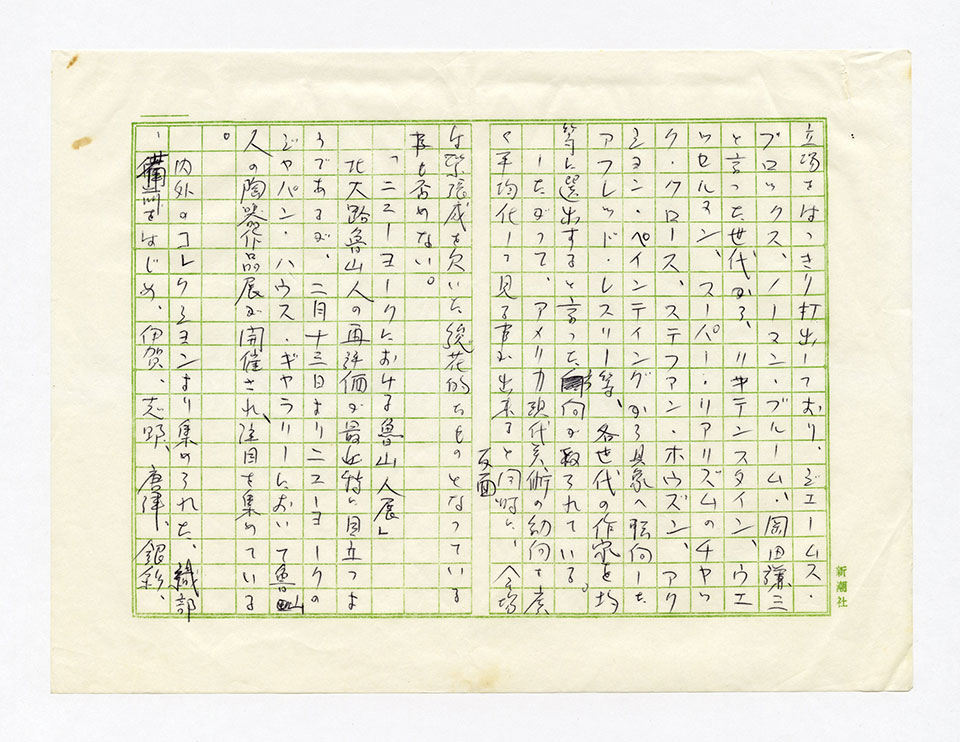 立場をはっきり打出しており、ジェームス・
ブロックス、ノーマン・ブルーム、岡田謙三
と言った世代から、リキテンスタイン、ウエ
ッセルマン、スーパー・リアリズムのチャッ
ク・クロース、ステファン・ホウズン、アク
ション・ペインティングから具象へ転向した
アフレッド・レスリー等、各世代の作家を均
等に選出すると言った傾向が取られている。
したがって、アメリカ現代美術の動向を広
く平均化して見る事が出来ると同時に、反面会場
は緊張感を欠いた総花的なものとなっている
事も否めない。
「ニューヨークにおける魯山人展」
北大路魯山人の再評価が最近特に目立つよ
うであるが、二月十三日よりニューヨークの
ジャパン・ハウス・ギャラリーにおいて魯山
人の陶器作品展が開催され、注目を集めている
。
内外のコレクションより集められた、織部
、備前をはじめ、伊賀、志野、唐津、銀彩、
新潮社